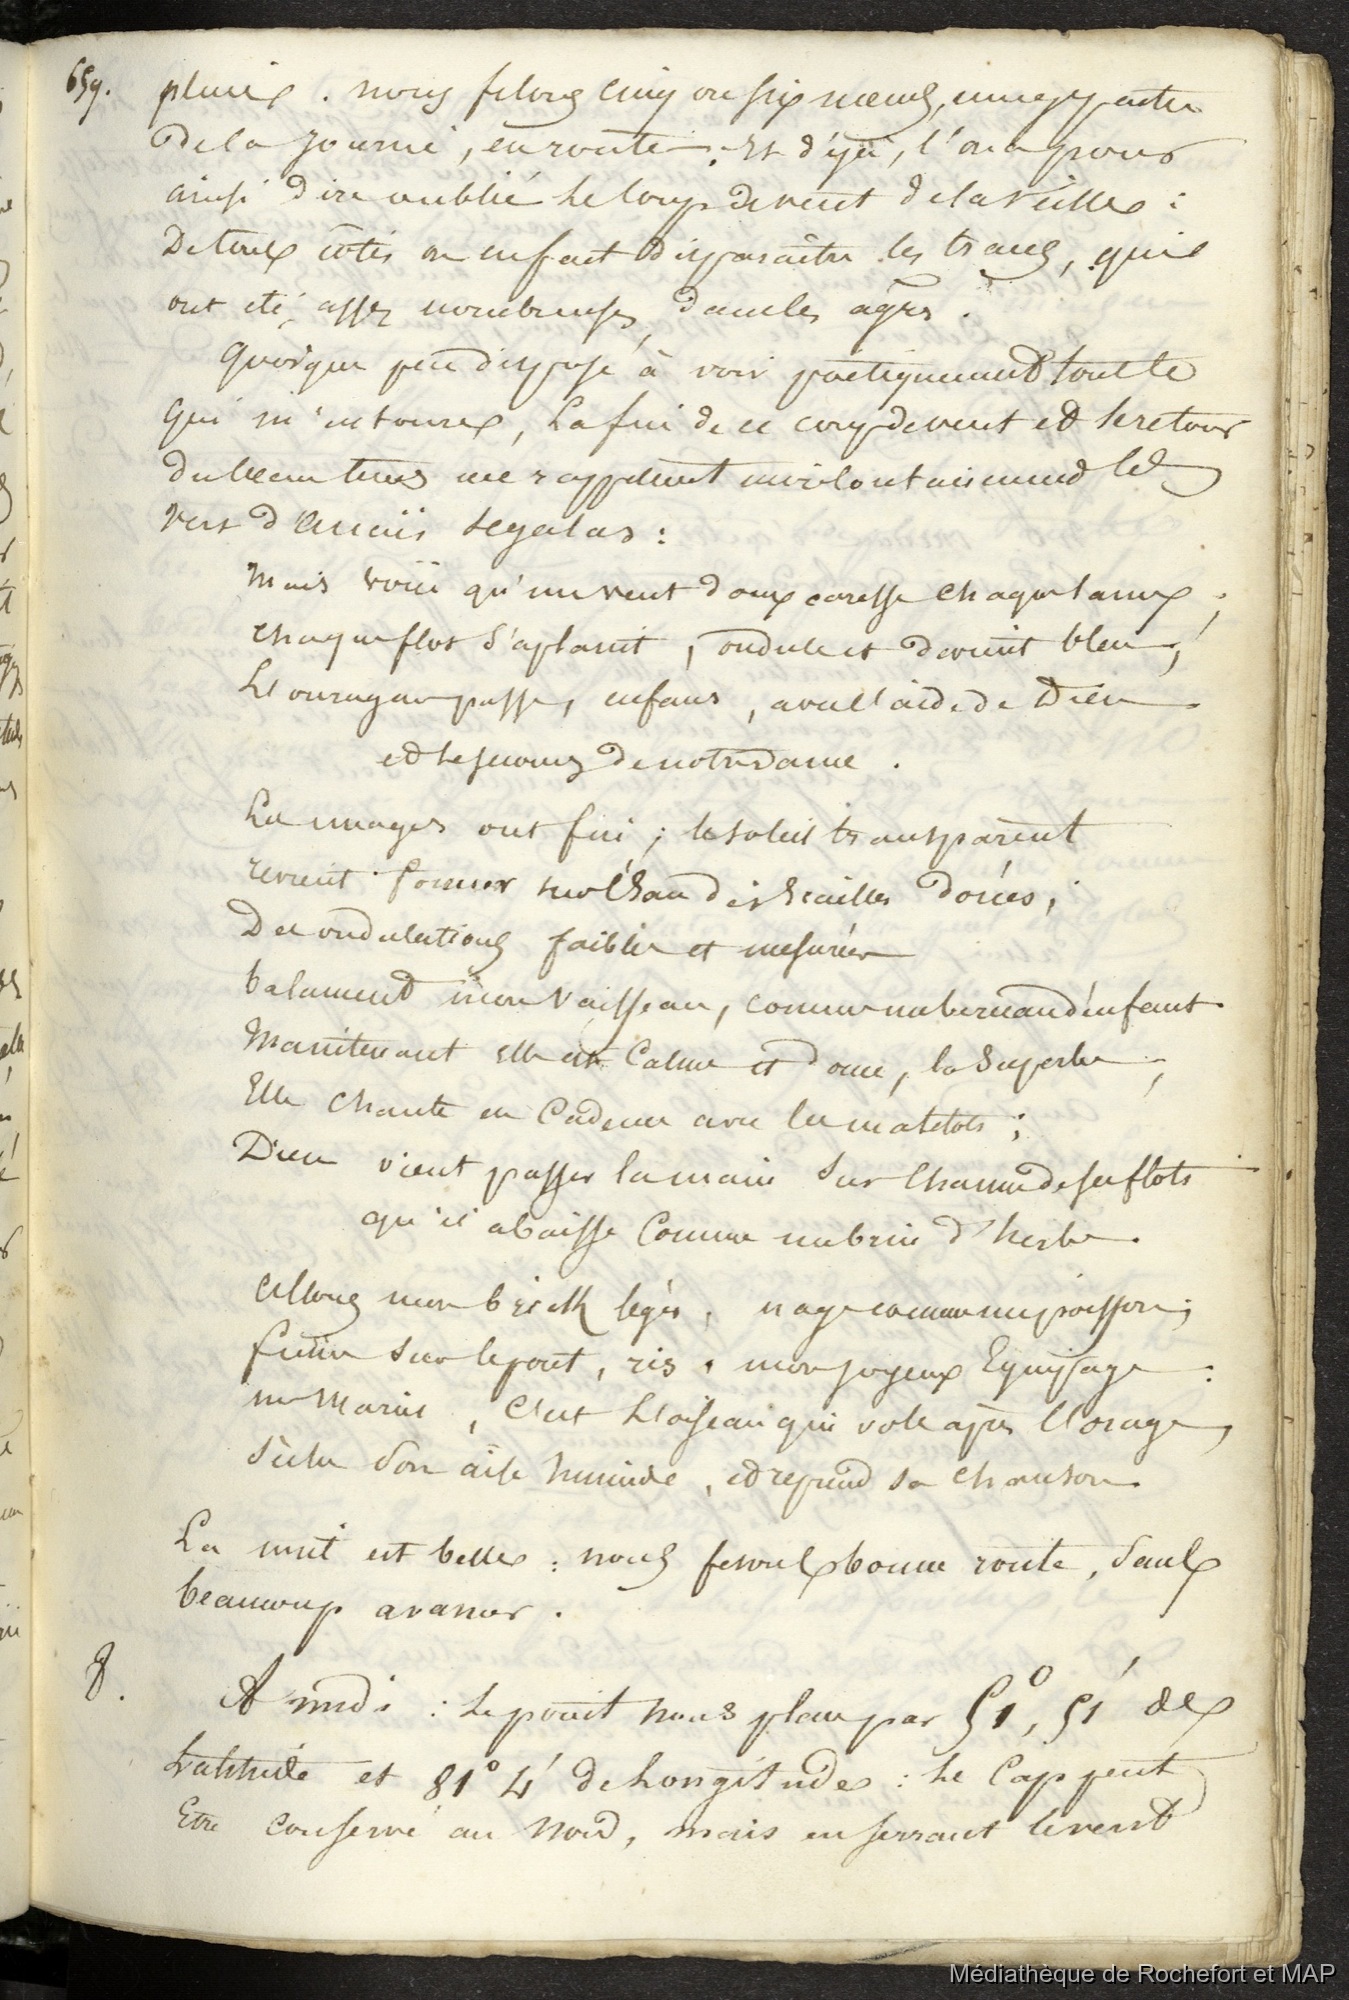 659.
pluie. nous filons cinq ou six nœuds, une partie
de la journée, en route : Et déjà, l'on a pour
ainsi dire oublié le coup de vent de la veille :
De tous côtés on en fait disparaître les traces, qui
ont été, assez nombreuses, dans les agrès.
Quoique peu disposé à voir poétiquement tout ce
qui m'entoure, La fin de ce coup de vent et le retour
du beau tems me rappellent involontairement les
vers d'Anaïs Segalas :
Mais voici qu'un vent doux caresse chaque lame ;
chaque flot s'aplanit, ondule et devient bleu ;
L'ouragan passe, enfans, avec l'aide de Dieu
et le secours de notre dame.
Les nuages ont fui ; le soleil transparent
revient former sur l'Eau des Ecailles dorées ;
Des ondulations faibles et mesurées
balancent mon vaisseau, comme un berceau d'enfant.
Maintenant elle est Calme et douce, la Superbe ;
Elle chante en Cadence avec les matelots ;
Dieu vient passer la main sur chacun de ses flots
qu'il abaisse Comme un brin d'herbe.
Allons mon brick léger, nage comme un poisson ;
fume sur le pont, ris, mon joyeux Equipage :
un Marin, C'est L'oiseau qui vole après L'orage,
sèche son aile humide, et reprend sa chanson.
La nuit est belle : nous fesons bonne route, sans
beaucoup avancer.
8.
A midi : Le point nous place par 51°, 51' de
Latitude et 81° 4' de Longitude : Le Cap peut
Etre conservé au Nord, mais en serrant le vent
Médiathèque de Rochefort et MAP